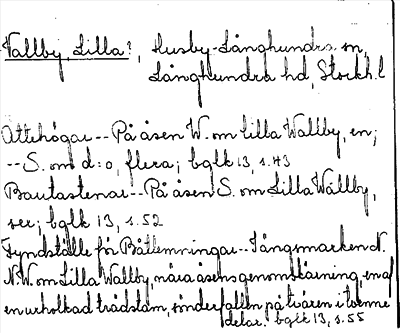 Vallby, Lilla?, Husby-Långhundra sn,
Långhundra hd, Stockh.l
Ättehögar -- På åsen W. om Lilla Wallby, en;
-- S. om d:o, flera; bglk 13, s. 43
Bautastenar -- På åsen S. om Lilla Wallby,
ser; bglk 13, s. 52
Fyndställe för Båtlemningar -- Sångmarken N.
N.W. om Lilla Wallby, nära åsens genomskärning, en af
en urholkad trädstam, sönderfallen på tvären i tvenne
delar. bglk 13, s. 55